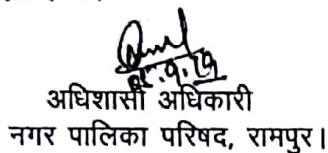 अधिशासी अधिकारी
नगर पालिका परिषद, रामपुर।